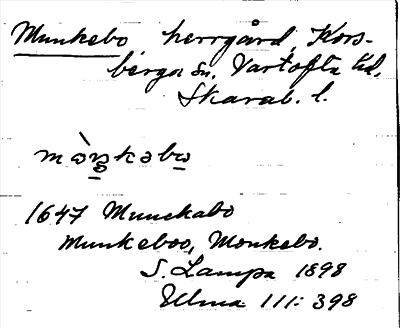 Munkebo, herrgård, Kors-
berga sn. Vartofta hd,
Skarab. l.
1647 Munckabo
Munkeboo, Monkebo.
S. Lampa 1898
Ulma 111: 398